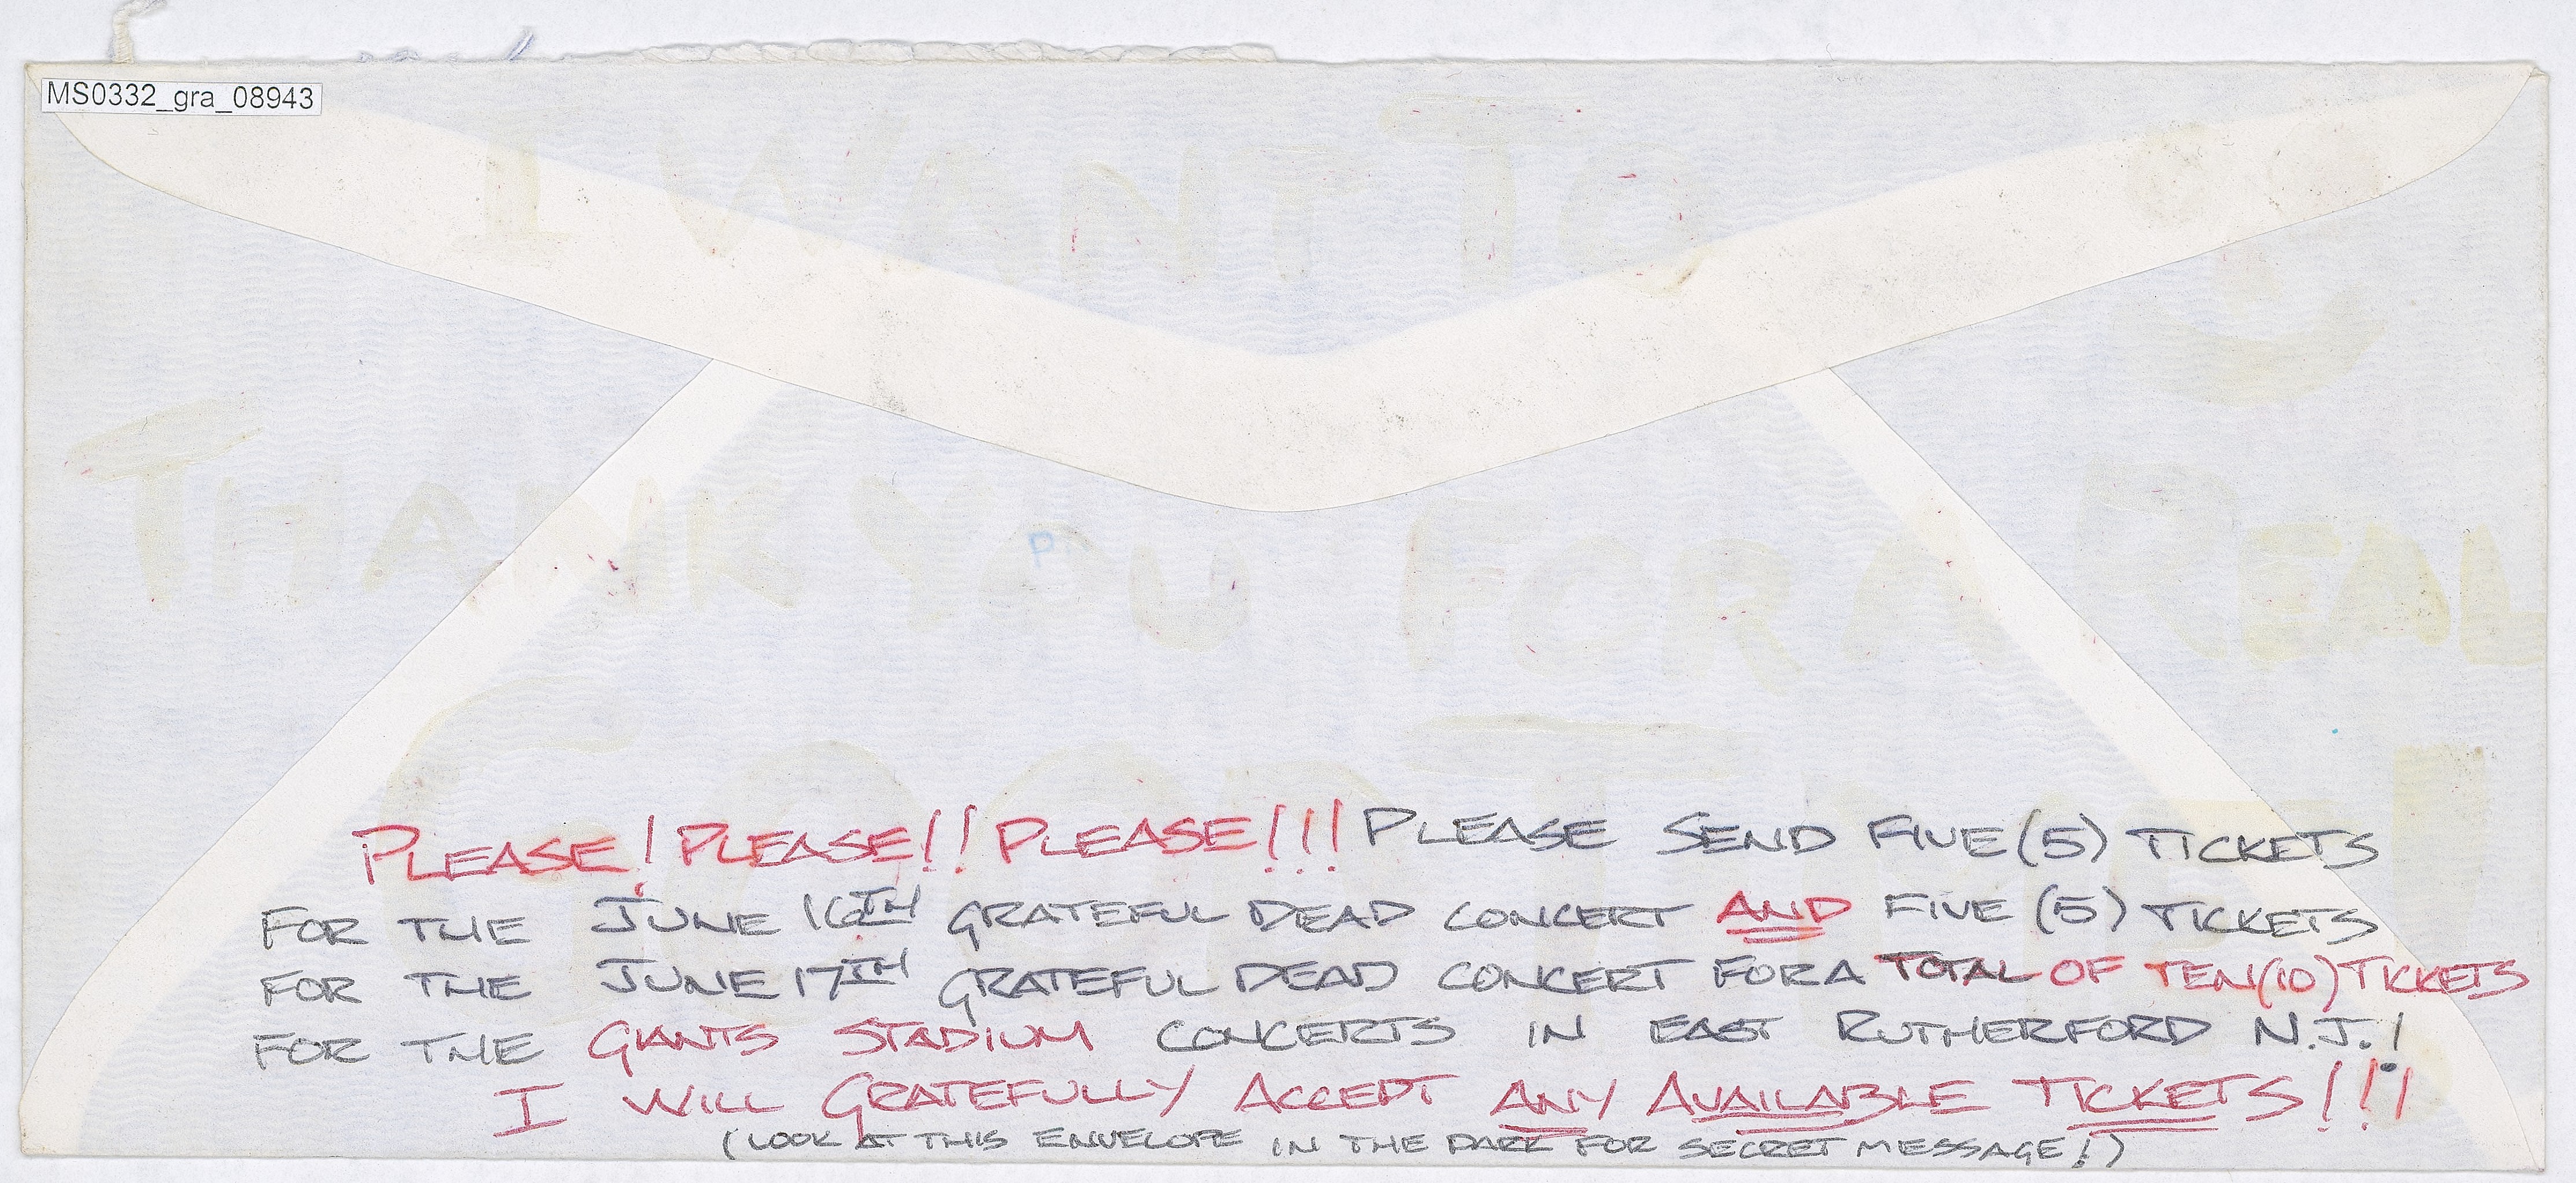 MS0332_gra_08943
I WANT TO
THANK YOU FOR A REAL
GOOD TIME!
PLEASE! PLEASE!! PLEASE!!! PLEASE SEND FIVE (5) TICKETS
FOR THE JUNE 16TH GRATEFUL DEAD CONCERT AND FIVE (5) TICKETS
FOR THE JUNE 17TH GRATEFUL DEAD CONCERT FOR A TOTAL OF TEN (10) TICKETS
FOR THE GIANTS STADIUM CONCERTS IN EAST RUTHERFORD N.J.!
I WILL GRATEFULLY ACCEPT ANY AVAILABLE TICKETS!!!
(LOOK AT THIS ENVELOPE IN THE DARK FOR SECRET MESSAGE!)